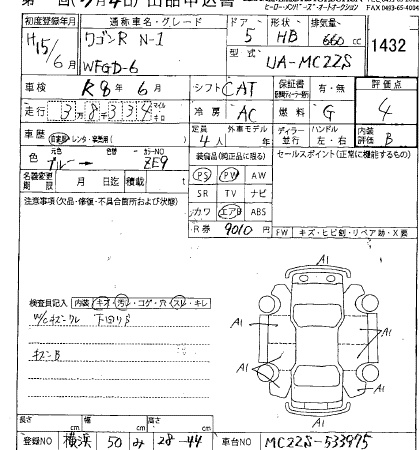 出品申込書
ヒーロー・メンバーズ・オートオークション
FAX 0493-65-4004
初度登録年月 通称車名・グレード ドア 形状 排気量
H15/6月 ワゴンR N-1 5 HB 660cc 1432
WFGD-6 型式 UA-MC22S
車検 R8年6月 シフト CAT 保証書 有・無 評価点
走行 3万8千334 マイル キロ 冷房 AC 燃料 G 4
車歴 自家用・レンタ・営業用 定員 4人 外車モデル ディーラー 並行 ハンドル 左・右 内装評価 B
色 元色 ブルー→ 色替 カラーNO ZE9 装備品(純正品に限る) セールスポイント(正常に機能するもの)
名義変更期限 月 日迄 積載 t PS PW AW
注意事項(欠品・修復・不具合箇所および状態) SR TV ナビ
カワ エアB ABS
R券 9010 FW キズ・ヒビ割・リペア跡・X要
検査員記入 内装 キオ・汚・コゲ・穴・スレ・キレ
W/Cキズ・ワレ 下回りS
キズB
A1
A1
A1
A1
A1
A1
A1
長さ cm 幅 cm 高さ cm
登録NO 横浜 50 み 28-44 車台NO MC22S-533975